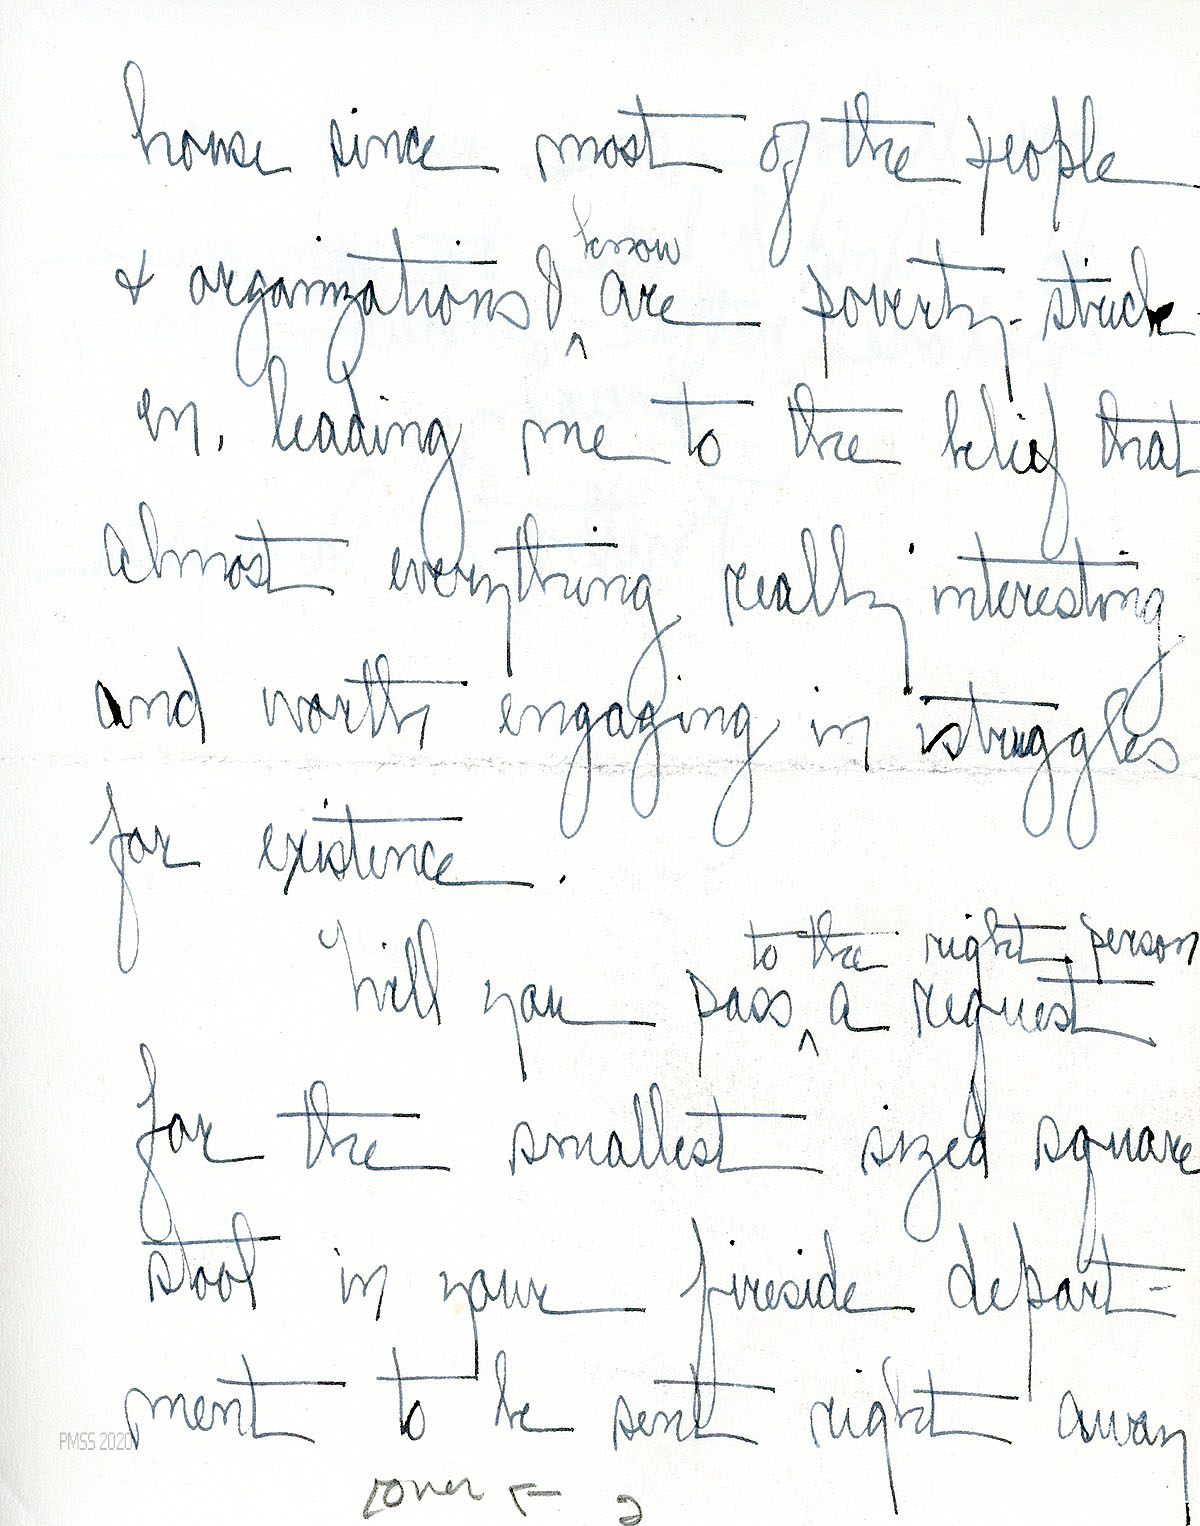 house since most of the people
know
& organizations I ^ are poverty-strick-
en, leading me to the belief that
almost everything really interesting
and worth engaging in struggles
for existence.
to the right person
Will you pass ^ a request
for the smallest sized square
stool in your fireside depart=
ment to be sent right away
PMSS 2020
over 2